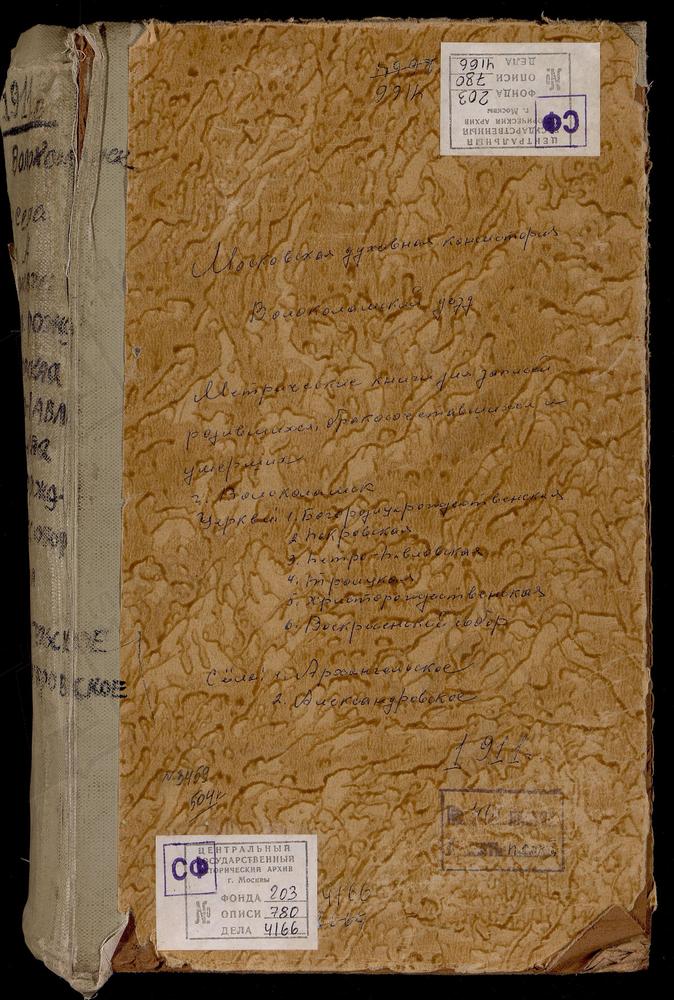 4166
ЦЕНТРАЛЬНЫЙ
ГОСУДАРСТВЕННЫЙ
ИСТОРИЧЕСКИЙ АРХИВ
г. Москвы
СФ
№
ФОНДА 203
ОПИСИ 780
ДЕЛА 4166
Московская духовная консистория
Волоколамский уезд
Метрические книги для записей
родившихся, бракосочетавшихся и
умерших
г. Волоколамск
Церквей: 1. Богородицерождественская
2. Покровская
3. Петро-Павловская
4. Троицкая
5. Христорождественская
6. Воскресенский собор
Сёла: 1. Архангельское
2. Александровское
1911г.
N 3469
504 г
ЦЕНТРАЛЬНЫЙ
ГОСУДАРСТВЕННЫЙ
ИСТОРИЧЕСКИЙ АРХИВ
г. Москвы
СФ
№
ФОНДА 203
ОПИСИ 780
ДЕЛА 4166
4166
1911
села